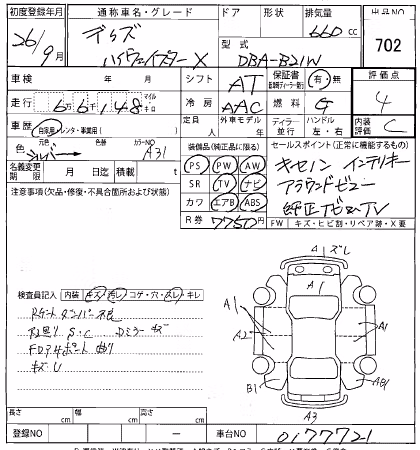 初度登録年月 通称車名・グレード ドア 形状 排気量 出品NO
26/9月 デイズ 660cc 702
ハイウェイスター X 型式 DBA-B21W
車検 年 月 シフト AT 保証書 有・無 評価点
走行 6万6千148 マイル キロ 冷房 AAC 燃料 G 4
車歴 自家用 レンタ・事業用( ) 定員 人 外車モデル 年 ディーラー 並行 ハンドル 左・右 内装 C
色 元色 シルバー 色番 カラーNO A31 装備品(純正品に限る) セールスポイント(正常に機能するもの)
名義変更期限 月 日迄 積載 t PS PW AW キセノン インテリキー
注意事項(欠品・修復・不具合箇所および状態) SR TV ナビ アラウンドビュー
カワ エアB ABS 純正ナビTV
R券 7750円 FW キズ・ヒビ割・リペア跡・X要
検査員記入 内装 キズ 汚レ コゲ・穴・スレ・キレ
S・C Dミラーキズ
キズ U
A ズレ
A1
A1
A2
A1
B1
AB1
A3
長さ cm 幅 cm 高さ cm
登録NO 車台NO 0177721